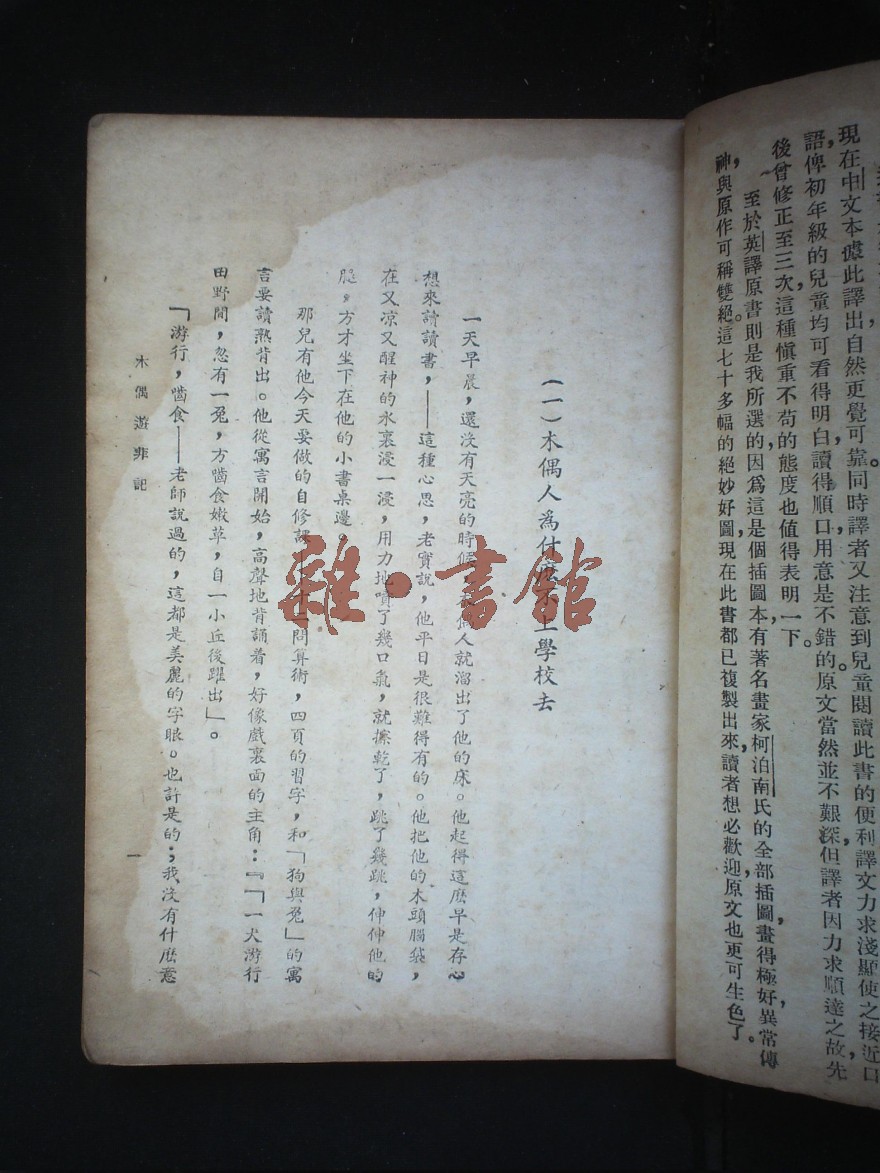 現在中文本儘此譯出自然更覺可靠。同時譯者又注意到兒童閱讀此書的便利譯文力求淺顯使之接近口
語，俾初年級的兒童均可看得明白，讀得順口，用意是不錯的。原文當然並不艱深，但譯者因力求順達之故，先
後曾修正至三次，這種慎重不苟的態度也值得表明一下。
至於英譯原書則是我所選的，因為這是個插圖本，有著名畫家柯泊南氏的全部插圖，畫得極好，異常傳
神，與原作可稱雙絕。這七十多幅的絕妙好圖現在此書都已複製出來，讀者想必歡迎，原文也更可生色了。
（一）木偶人為什麼不上學校去
一天早晨，還沒有天亮的時候，偶人就溜出了他的床。他起得這麼早是存心
想來請讀書，——這種心思，老實說，他平日是很難得有的。他把他的木頭腦袋，
在又凉又醒神的水裏浸一浸，用力地噴了幾口氣，就擦乾了，跳了幾跳，伸伸他的
腿，方才坐下在他的小書桌邊。
那兒有他今天要做的自修課，十二問算術，四頁的習字，和「狗與兔」的寓
言要讀熟背出。他從寓言開始，高聲地背誦着，好像戲裏面的主角：『「一犬游行
田野間，忽有一兔，方嚙食嫩草，自一小丘後躍出」。
「游行，嚙食——老師說過的，這都是美麗的字眼。也許是的；我沒有什麼意
木偶遊菲記
一
雜·書館